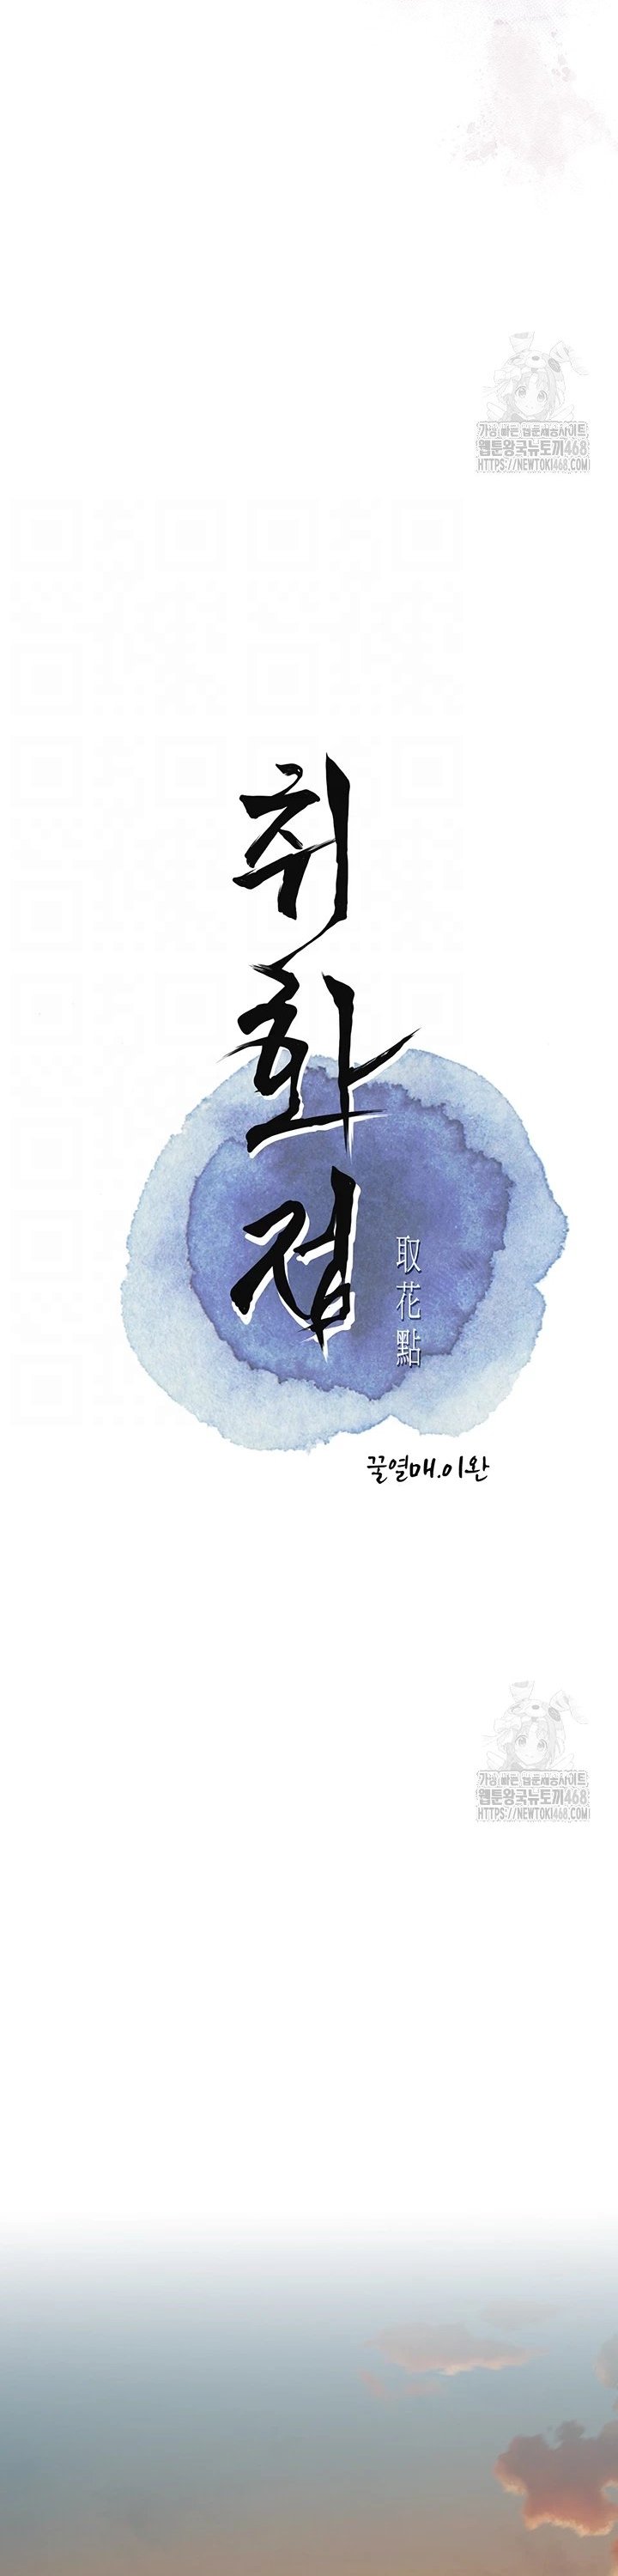 가장 빠른 웹툰제공사이트
웹툰왕국뉴토끼468
HTTPS://NEWTOKI468.COM
취화점
取花點
꿀열매.이완
가장 빠른 웹툰제공사이트
웹툰왕국뉴토끼468
HTTPS://NEWTOKI468.COM